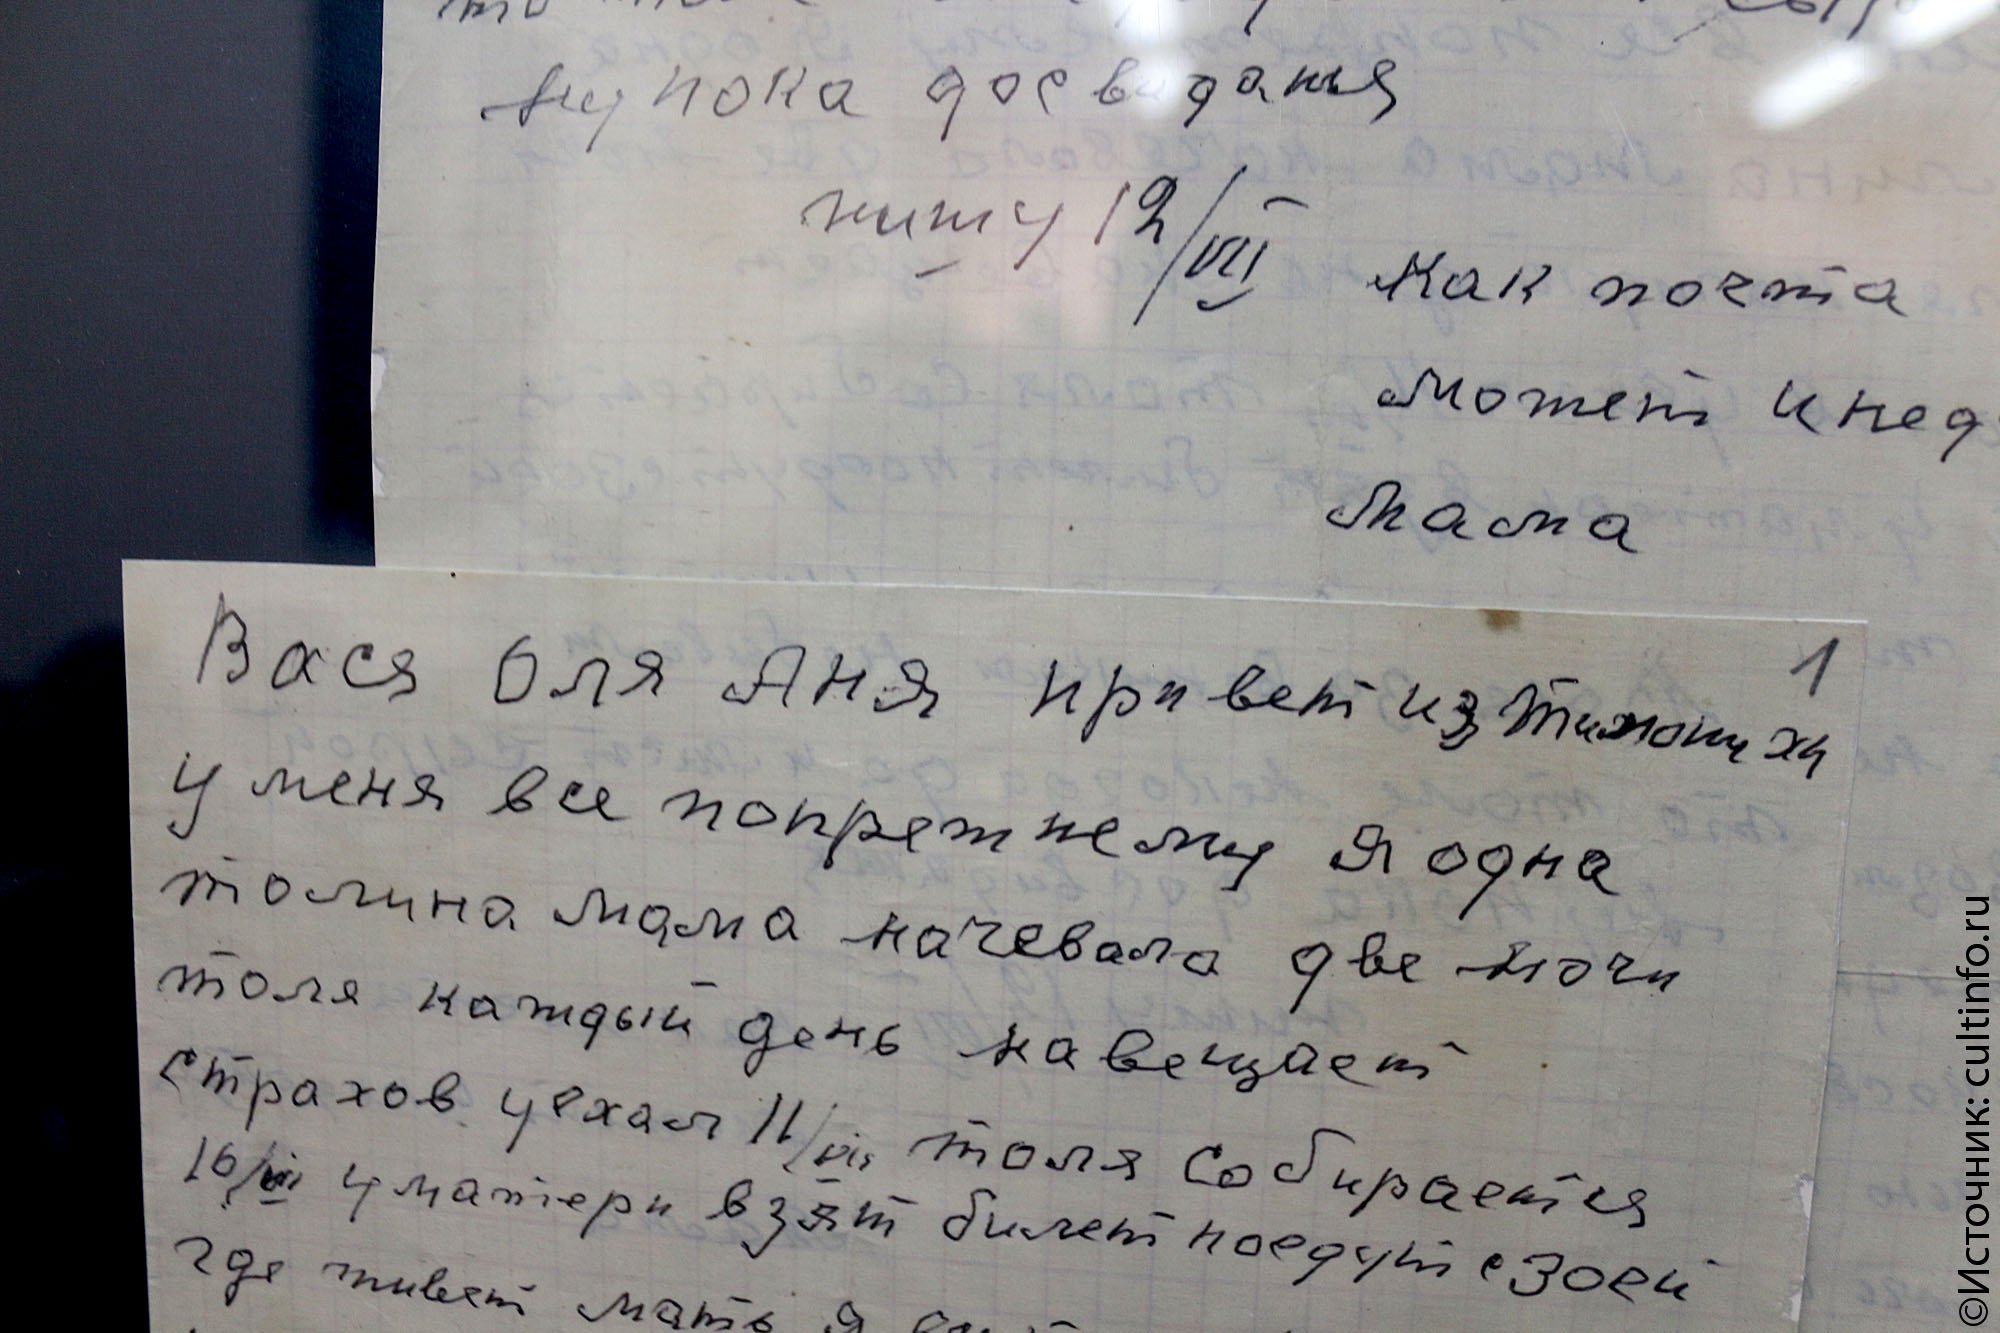 ну пока досвиданья
пишу 12/VII
Как почта
может и нед
Мама
1
Вася Оля Аня привет из Тимонихи
у меня все попрежнему я одна
толина мама начевала две ночи
толя каждый день навещает
страхов уехал 11/VII толя собирается
16/VII у матери взят билет поедут с Зоей
где живет мать я
©Источник: cultinfo.ru